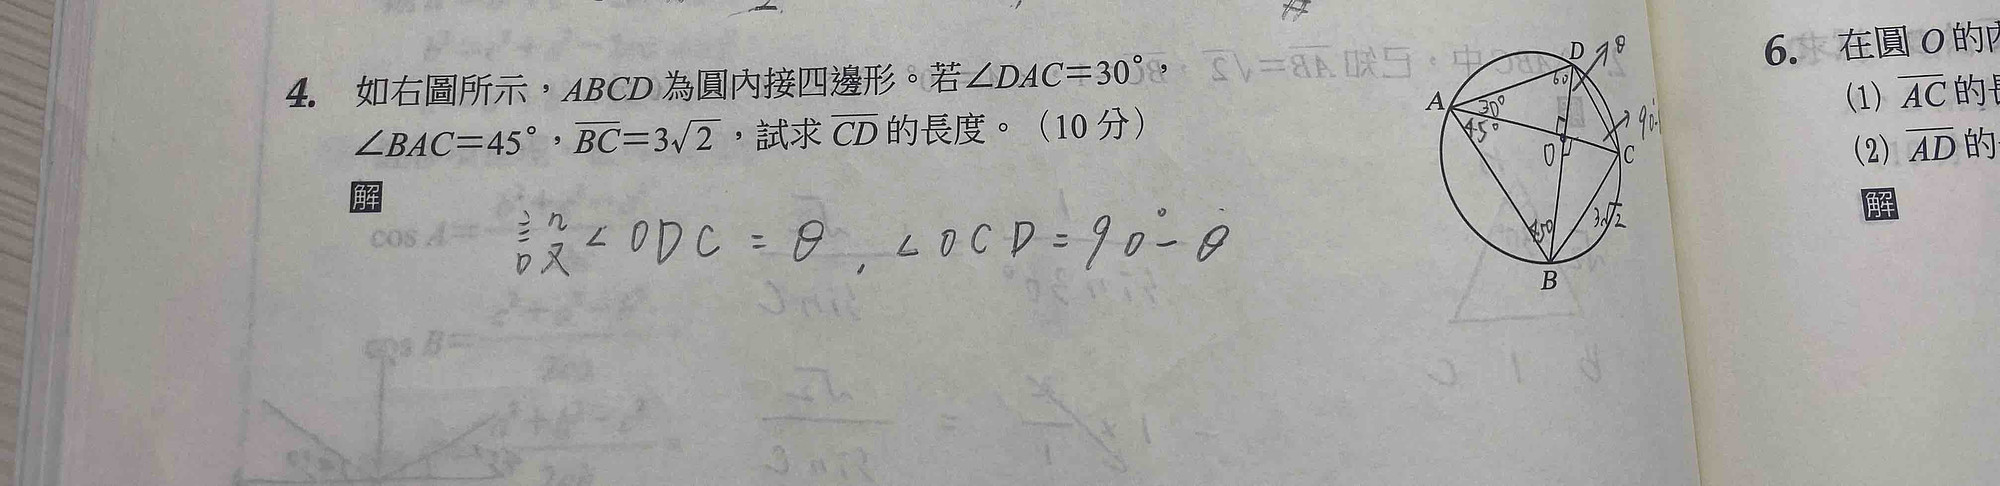 4. 如右圖所示,ABCD 為圓內接四邊形。若∠DAC=30°,
∠BAC=45°,BC=3√2,試求 CD 的長度。(10 分)
解
設∠ODC=θ,∠OCD=90°-θ
D
θ
60
A
30°
45°
90-
O
C
3√2
450
B
6. 在圓 O 的內
(1) AC 的長
(2) AD 的
解